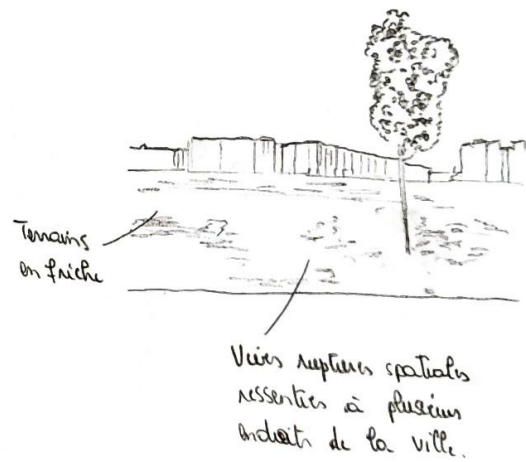 Terrains
en friche
Vives ruptures spatiales
ressenties à plusieurs
endroits de la ville.